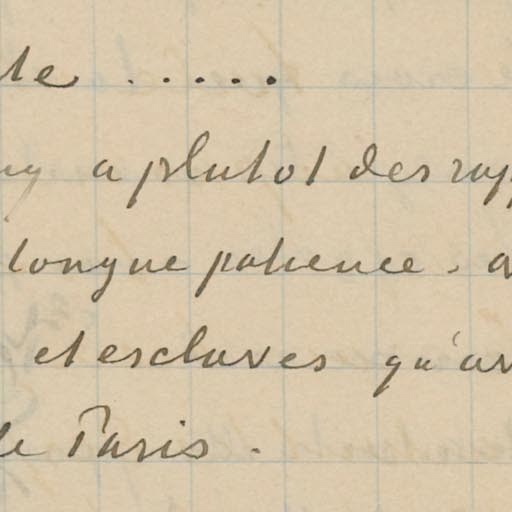 te .....
ny a plutot des rapp
longue patience. a
et esclaves qu'av
de Paris.